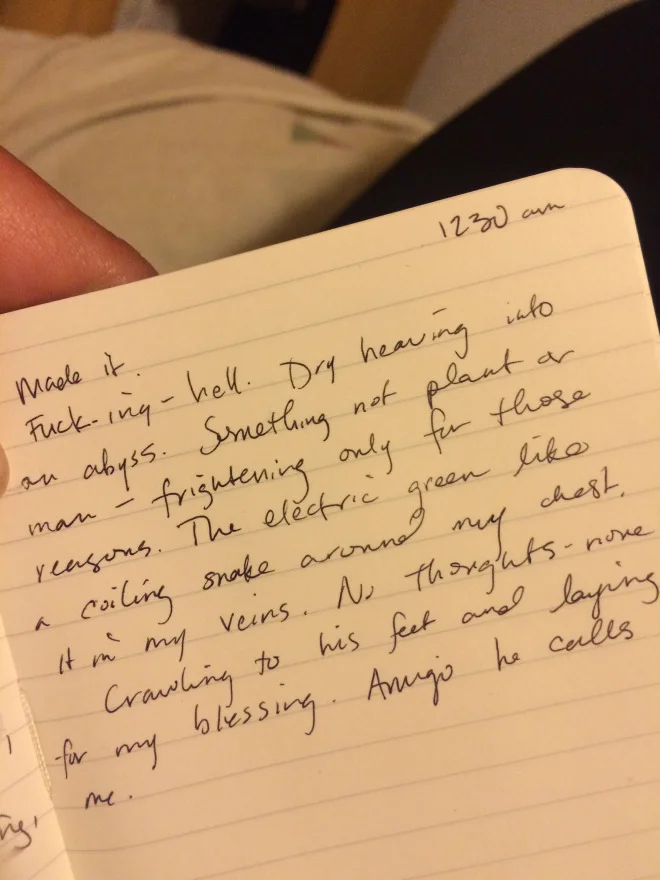 1230 am
Made it.
Fuck-ing-hell. Dry heaving into
an abyss. Something not plant or
man - frightening only for those
reasons. The electric green like
a coiling snake around my chest.
It in my veins. No thoughts - none
Crawling to his feet and laying
for my blessing. Amigo he calls
me.